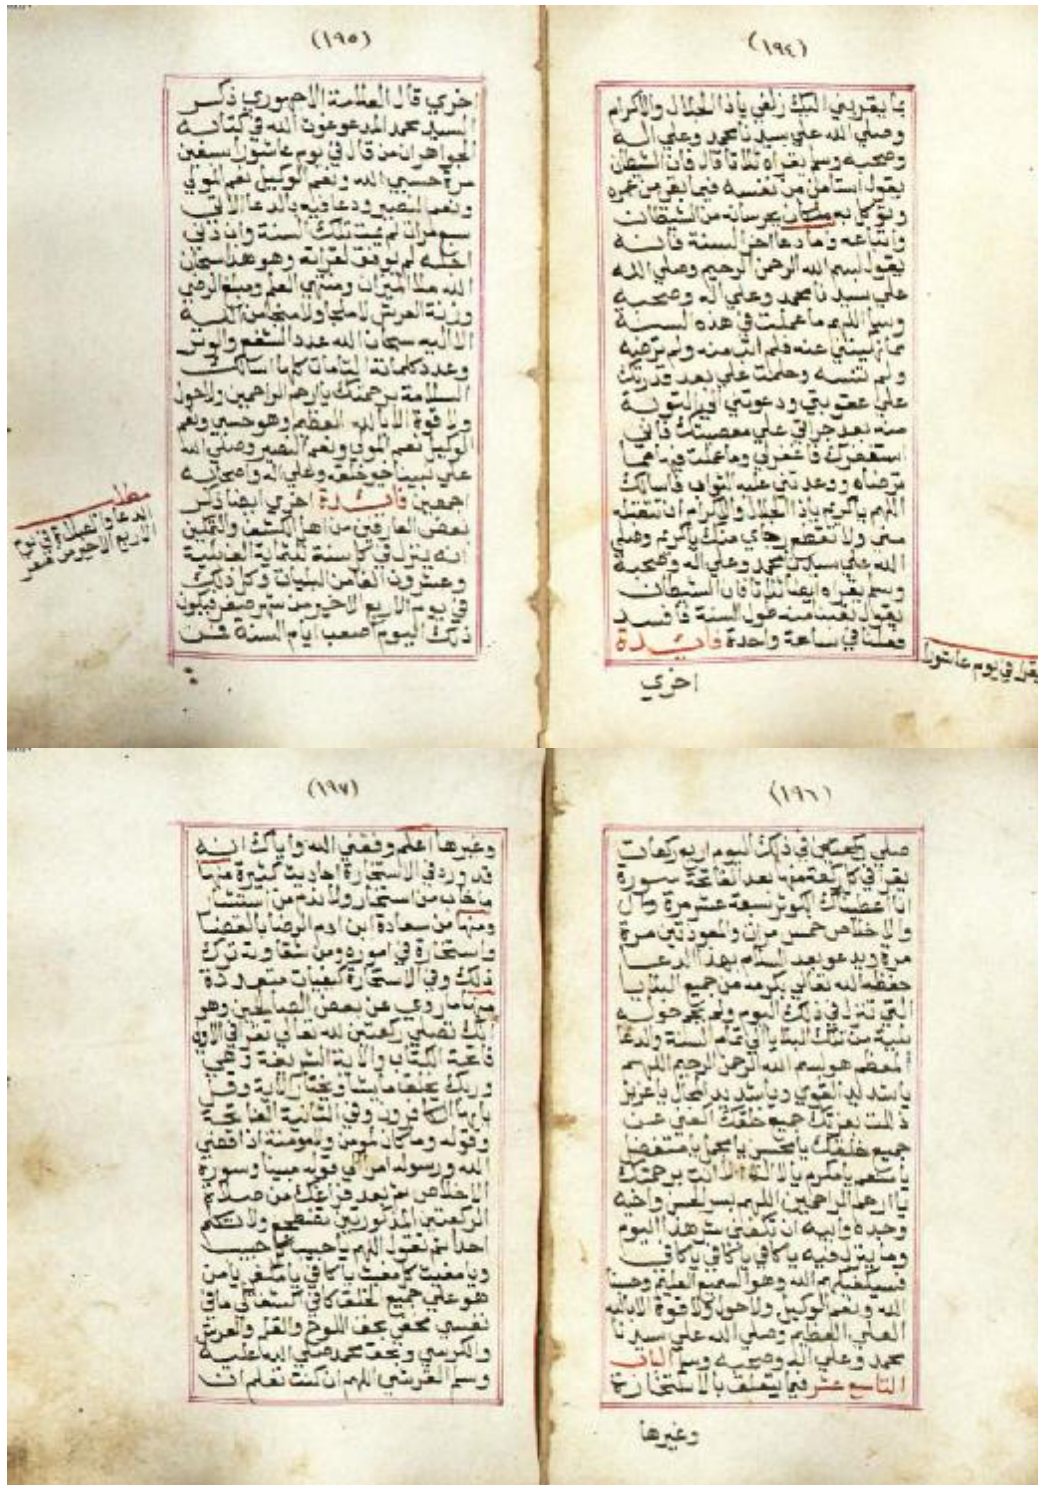 (١٩٤)
بما يقربني اليك زلفي ياذا الجلال والاكرام
وصلي الله علي سيدنا محمد وعلي اله
وصحبه وسلم يقراه ثلاثا قال فان الشيطان
يقول استامن من نفسه فيما بقي من عمره
ويوكل به ملكان يحرسانه من الشيطان
واتباعه وما دعا اخر السنة فانه
يقول بسم الله الرحمن الرحيم وصلي الله
علي سيدنا محمد وعلي اله وصحبه
وسلم اللهم ما عملت في هذه السنة
مما نهيتني عنه فلم اتب منه ولم ترضه
ولم تنسه وحلمت علي بعد قدرتك
علي عقوبتي ودعوتني الي التوبة
منه بعد جراتي علي معصيتك فاني
استغفرك فاغفرلي وما عملت فيها مما
ترضاه ووعدتني عليه الثواب فاسالك
اللهم ياكريم ياذا الجلال والاكرام ان تتقبله
مني ولا تقطع رجاي منك ياكريم وصلي
الله علي سيدنا محمد وعلي اله وصحبه
وسلم يقراه ايضا ثلاثا فان الشيطان
يقول تعبنا منه طول السنة فافسد
فعلنا في ساعة واحدة فائدة
يقرا في يوم عاشورا
اخري
(١٩٥)
اخري قال العلامة الاجهوري ذكر
السيد محمد المدعو غوث الله في كتابه
الجواهر ان من قال في يوم عاشورا سبعين
مرة حسبي الله ونعم الوكيل نعم المولي
ونعم النصير ودعا فيه بالدعا الاتي
سبع مرات لم يمت تلك السنة وان دني
اجله لم يوفق لقرايته وهو هذا سبحان
الله ملا الميزان ومنتهي العلم ومبلغ الرضي
وزنة العرش لا ملجا ولا منجا من الله
الا اليه سبحان الله عدد الشفع والوتر
وعدد كلماته التامات كلها اسالك
السلامة برحمتك يا ارحم الراحمين ولاحول
ولا قوة الا بالله العظيم وهو حسبي ونعم
الوكيل نعم المولي ونعم النصير وصلي الله
علي نبينا خير خلقه وعلي اله واصحابه
اجمعين فائدة اخري ايضا ذكر
بعض العارفين من اهل الكشف والتمكين
انه ينزل في كل سنة ثلثماية الف بلية
وعشرون الفا من البليات وكل ذلك
في يوم الاربع الاخير من شهر صفر فيكون
ذلك اليوم اصعب ايام السنة فمن
مطلب
الدعا والصلاة في يوم
الاربع الاخير من صفر
(١٩٦)
صلي في ذلك اليوم اربع ركعات
يقرا في كل ركعة منها بعد الفاتحة سورة
انا اعطيناك الكوثر سبعة عشر مرة
والاخلاص خمس مرات والمعوذتين مرة
مرة ويدعو بعد السلام بهذا الدعا
حفظه الله تعالي بكرمه من جميع البلايا
التي تنزل في ذلك اليوم ولم يحم حوله
بلية من تلك البلايا الي تمام السنة والدعا
المعظم هو بسم الله الرحمن الرحيم اللهم
ياشديد القوي وياشديد المحال ياعزيز
ذللت بعزتك جميع خلقك اكفني عن
جميع خلقك يامحسن يامجمل يامتفضل
يامنعم يامكرم يامن لا اله الا انت برحمتك
يا ارحم الراحمين اللهم بسر الحسن واخيه
وجده وابيه ان تكفني شر هذا اليوم
وما ينزل فيه ياكافي ياكافي ياكافي
فسيكفيكهم الله وهو السميع العليم وحسبنا
الله ونعم الوكيل ولاحول ولاقوة الا بالله
العلي العظيم وصلي الله علي سيدنا
محمد وعلي اله وصحبه وسلم الباب
التاسع عشر فيما يتعلق بالاستخارة
وغيرها
(١٩٧)
وغيرها اعلم وفقني الله واياك انه
قد ورد في الاستخارة احاديث كثيرة منها
ما خاب من استخار ولا ندم من استشا
ومنها من سعادة ابن ادم الرضا بالقضا
واستخارة في اموره ومن شقاوته ترك
ذلك وفي الاستخارة كيفيات متعددة
منها ما روي عن بعض الصالحين وهو
انك تصلي ركعتين لله تعالي تقرا في الاولي
فاتحة الكتاب والاية الشريفة وهي
وربك يخلق مايشا ويختار الاية وقل
ياايها الكافرون وفي الثانية الفاتحة
وقوله وما كان لمومن ولا مومنة اذا قضي
الله ورسوله امرا الي قوله مبينا وسورة
الاخلاص ثم بعد فراغك من صلاة
الركعتين المذكورتين تضطجع ولا تتكلم
احدا ثم تقول اللهم ياحبيب ياحبيب
ويامغيث يامغيث ياكافي يامن
هو علي جميع خلقه كافي اكشف لي ما في
نفسي بحق بحق اللوح والقلم والعرش
والكرسي وبحق محمد صلي الله عليه
وسلم القرشي اللهم ان كنت تعلم ان